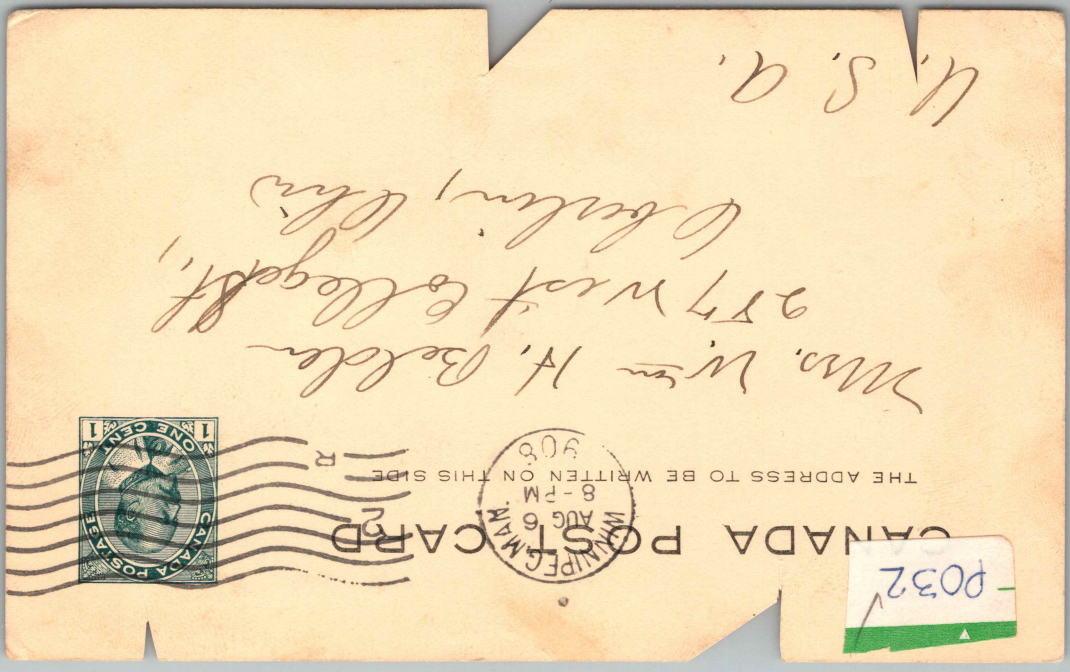 P032
CANADA POST CARD
THE ADDRESS TO BE WRITTEN ON THIS SIDE
WINNIPEG, MAN.
AUG 6
8 - PM
908
2
R
CANADA POSTAGE
ONE CENT
1 1
Mrs. Wm H. Belden
257 West College St.,
Oberlin, Ohio
U. S. A.